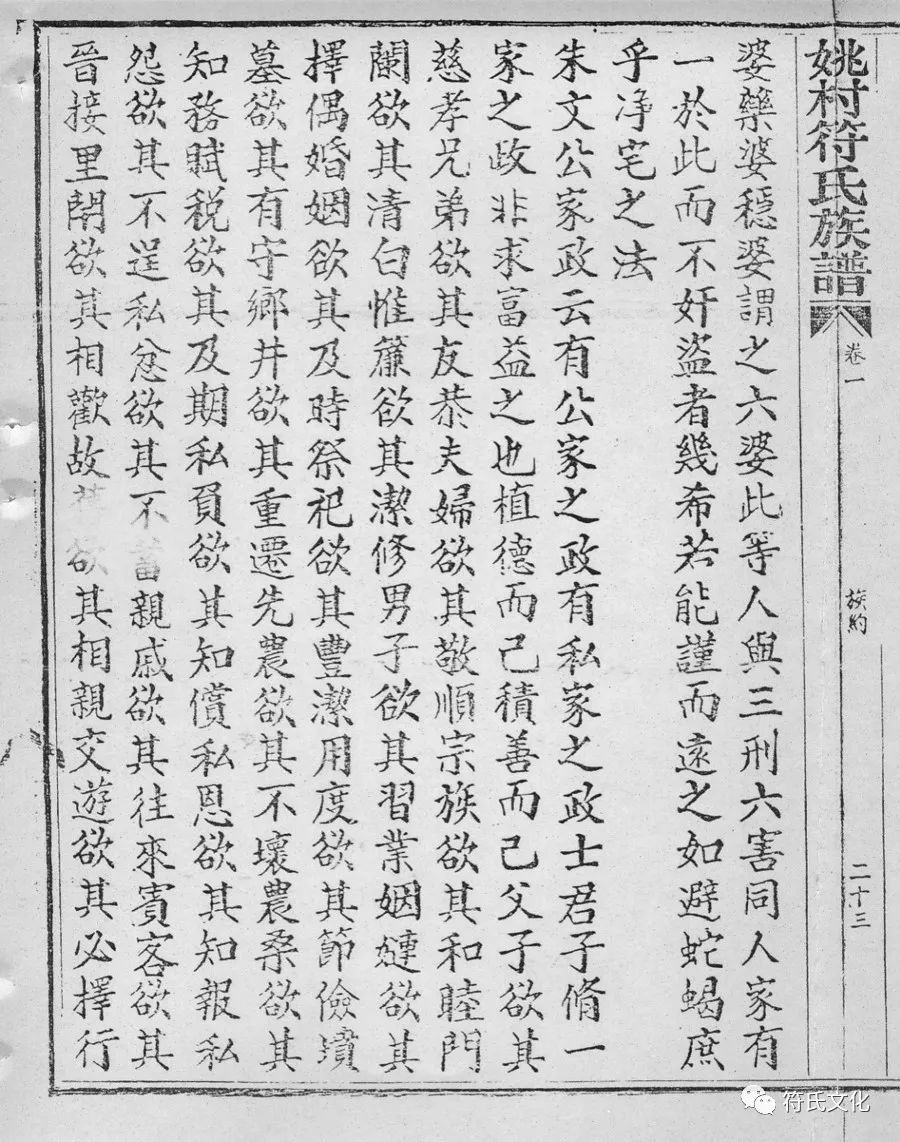 姚村符氏族譜
卷一
族約
二十三
婆藥婆穩婆謂之六婆此等人與三刑六害同人家有
一於此而不奸盜者幾希若能謹而遠之如避蛇蝎庶
乎净宅之法
朱文公家政云有公家之政有私家之政士君子脩一
家之政非求富益之也植德而己積善而己父子欲其
慈孝兄弟欲其友恭夫婦欲其敬順宗族欲其和睦門
闌欲其清白惟簾欲其潔修男子欲其習業姻嫤欲其
擇偶婚姻欲其及時祭祀欲其豐潔用度欲其節儉墳
墓欲其有守鄉井欲其重遷先農欲其不壞農桑欲其
知務賦税欲其及期私負欲其知償私恩欲其知報私
怨欲其不逞私忿欲其不蓄親戚欲其往來賓客欲其
晉接里閈欲其相歡故欲其相親交遊欲其必擇行
符氏文化